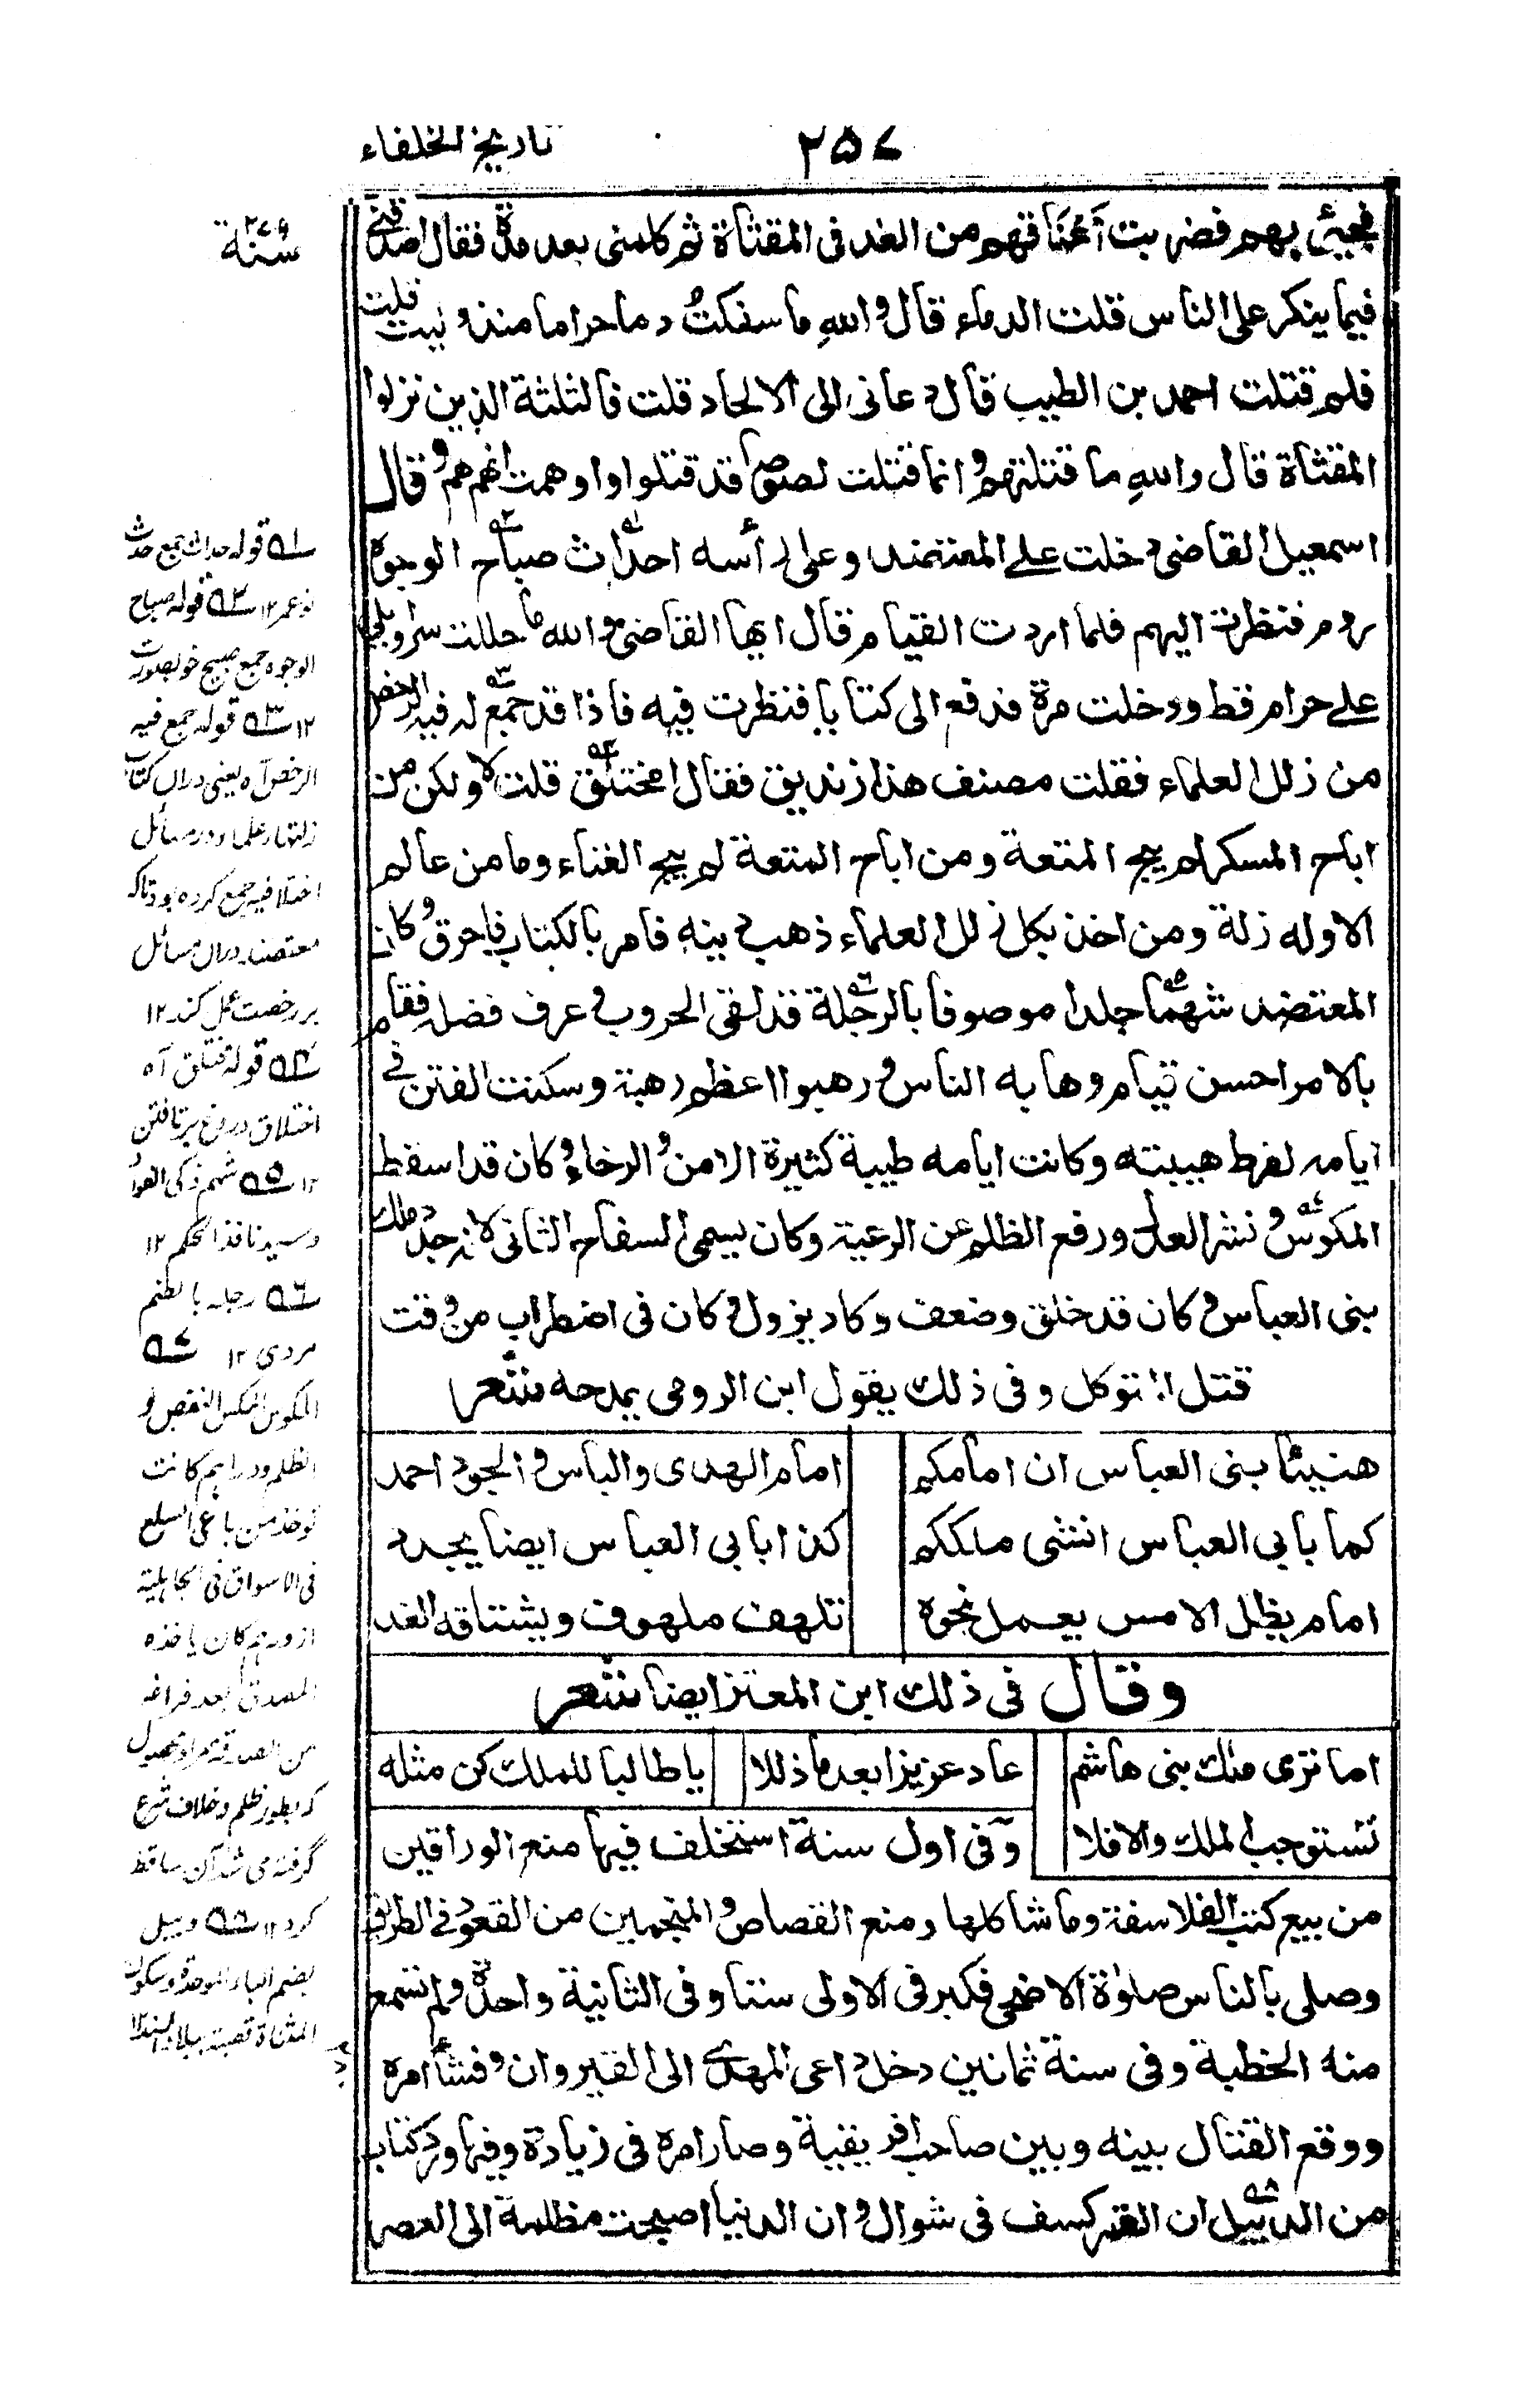 ٢٥٧
تاريخ الخلفاء
فجيئ بهم فضربت اعناقهم من الغد فى المقثاة ثم كلمنى بعد مدة فقال اصدقنى
فيما ينكر على الناس قلت الدماء قال والله ما سفكت دما حراما منذ وليت قلت
فلم قتلت احمد بن الطيب قال دعانى الى الالحاد قلت فالثلثة الذين نزلوا
المقثاة قال والله ما قتلتهم وانما قتلت لصوصا قد قتلوا واوهمت انهم هم وقال
اسمعيل القاضى دخلت على المعتضد وعلى رأسه احداث صباح الوجوه
روم فنظرت اليهم فلما اردت القيام قال ايها القاضى والله ما حللت سراويلى
على حرام قط ودخلت مرة فدفع الى كتابا فنظرت فيه فاذا قد جمع له فيه الرخص
من زلل العلماء فقلت مصنف هذا زنديق فقال امختلق قلت لا ولكن من
اباح المسكر لم يبح المتعة ومن اباح المتعة لم يبح الغناء وما من عالم
الا وله زلة ومن اخذ بكل زلل العلماء ذهب دينه فامر بالكتاب فاحرق وكان
المعتضد شهما جلدا موصوفا بالرجلة قد لقى الحروب وعرف فضله فقام
بالامر احسن قيام وهابه الناس ورهبوا اعظم رهبة وسكنت الفتن فى
ايامه لفرط هيبته وكانت ايامه طيبة كثيرة الامن والرخاء وكان قد اسقط
المكوس ونشر العدل ورفع الظلم عن الرعية وكان يسمى السفاح الثانى لانه جدد ملك
بنى العباس وكان قد خلق وضعف وكاد يزول وكان فى اضطراب من وقت
قتل المتوكل وفى ذلك يقول ابن الرومى يمدحه شعر
هنيئا بنى العباس ان امامكم امام الهدى والباس والجود احمد
كما بابى العباس انشى ملككم كذا بابى العباس ايضا يجدد
امام يظل الامس يعمل نحوه تلهف ملهوف ويشتاقه الغد
وقال فى ذلك ابن المعتز ايضا شعر
اما ترى ملك بنى هاشم عاد عزيزا بعد ما ذللا يا طالبا للملك كن مثله
تستوجب الملك والا فلا وفى اول سنة استخلف فيها منع الوراقين
من بيع كتب الفلاسفة وما شاكلها ومنع القصاص والمنجمين من القعود فى الطريق
وصلى بالناس صلوٰة الاضحى فكبر فى الاولى ستا وفى الثانية واحدة ولم تسمع
منه الخطبة وفى سنة ثمانين دخل داعى المهدى الى القيروان وفشا امره
ووقع القتال بينه وبين صاحب افريقية وصار امره فى زيادة وفيها ورد كتاب
من الدبيل ان القمر كسف فى شوال وان الدنيا اصبحت مظلمة الى العصر
سنة ٢٧٩
١ قوله احداث جمع حدث
نوعمر ١٢ ٢ قوله صباح
الوجوه جمع صبيح خوبصورت
١٢ ٣ قوله جمع فيه
الرخص آه يعنى دران كتاب
زلتهار علماء ودر مسائل
اختلافيه جمع كرده بود تاكه
معتضد دران مسائل
بر رخصت عمل كند ١٢
٤ قوله مختلق آه
اختلاق دروغ بر تافتن
١٢ ٥ شهم ذكى الفواد
وسيد نافذ الحكم ١٢
٦ رجله بالضم
مردى ١٢ ٧
المكوس المكس النقص و
الظلم ودراهم كانت
توخذ من بائعى السلع
فى الاسواق فى الجاهلية
او درهم كان ياخذه
المصدق بعد فراغه
من الصدقة
كه بطور ظلم وخلاف شرع
گرفته مى شد آن ساقط
كرد ١٢ ٨ دبيل
بضم الباء الموحدة وسكون
المثناة قصبة ببلاد السند ١٢